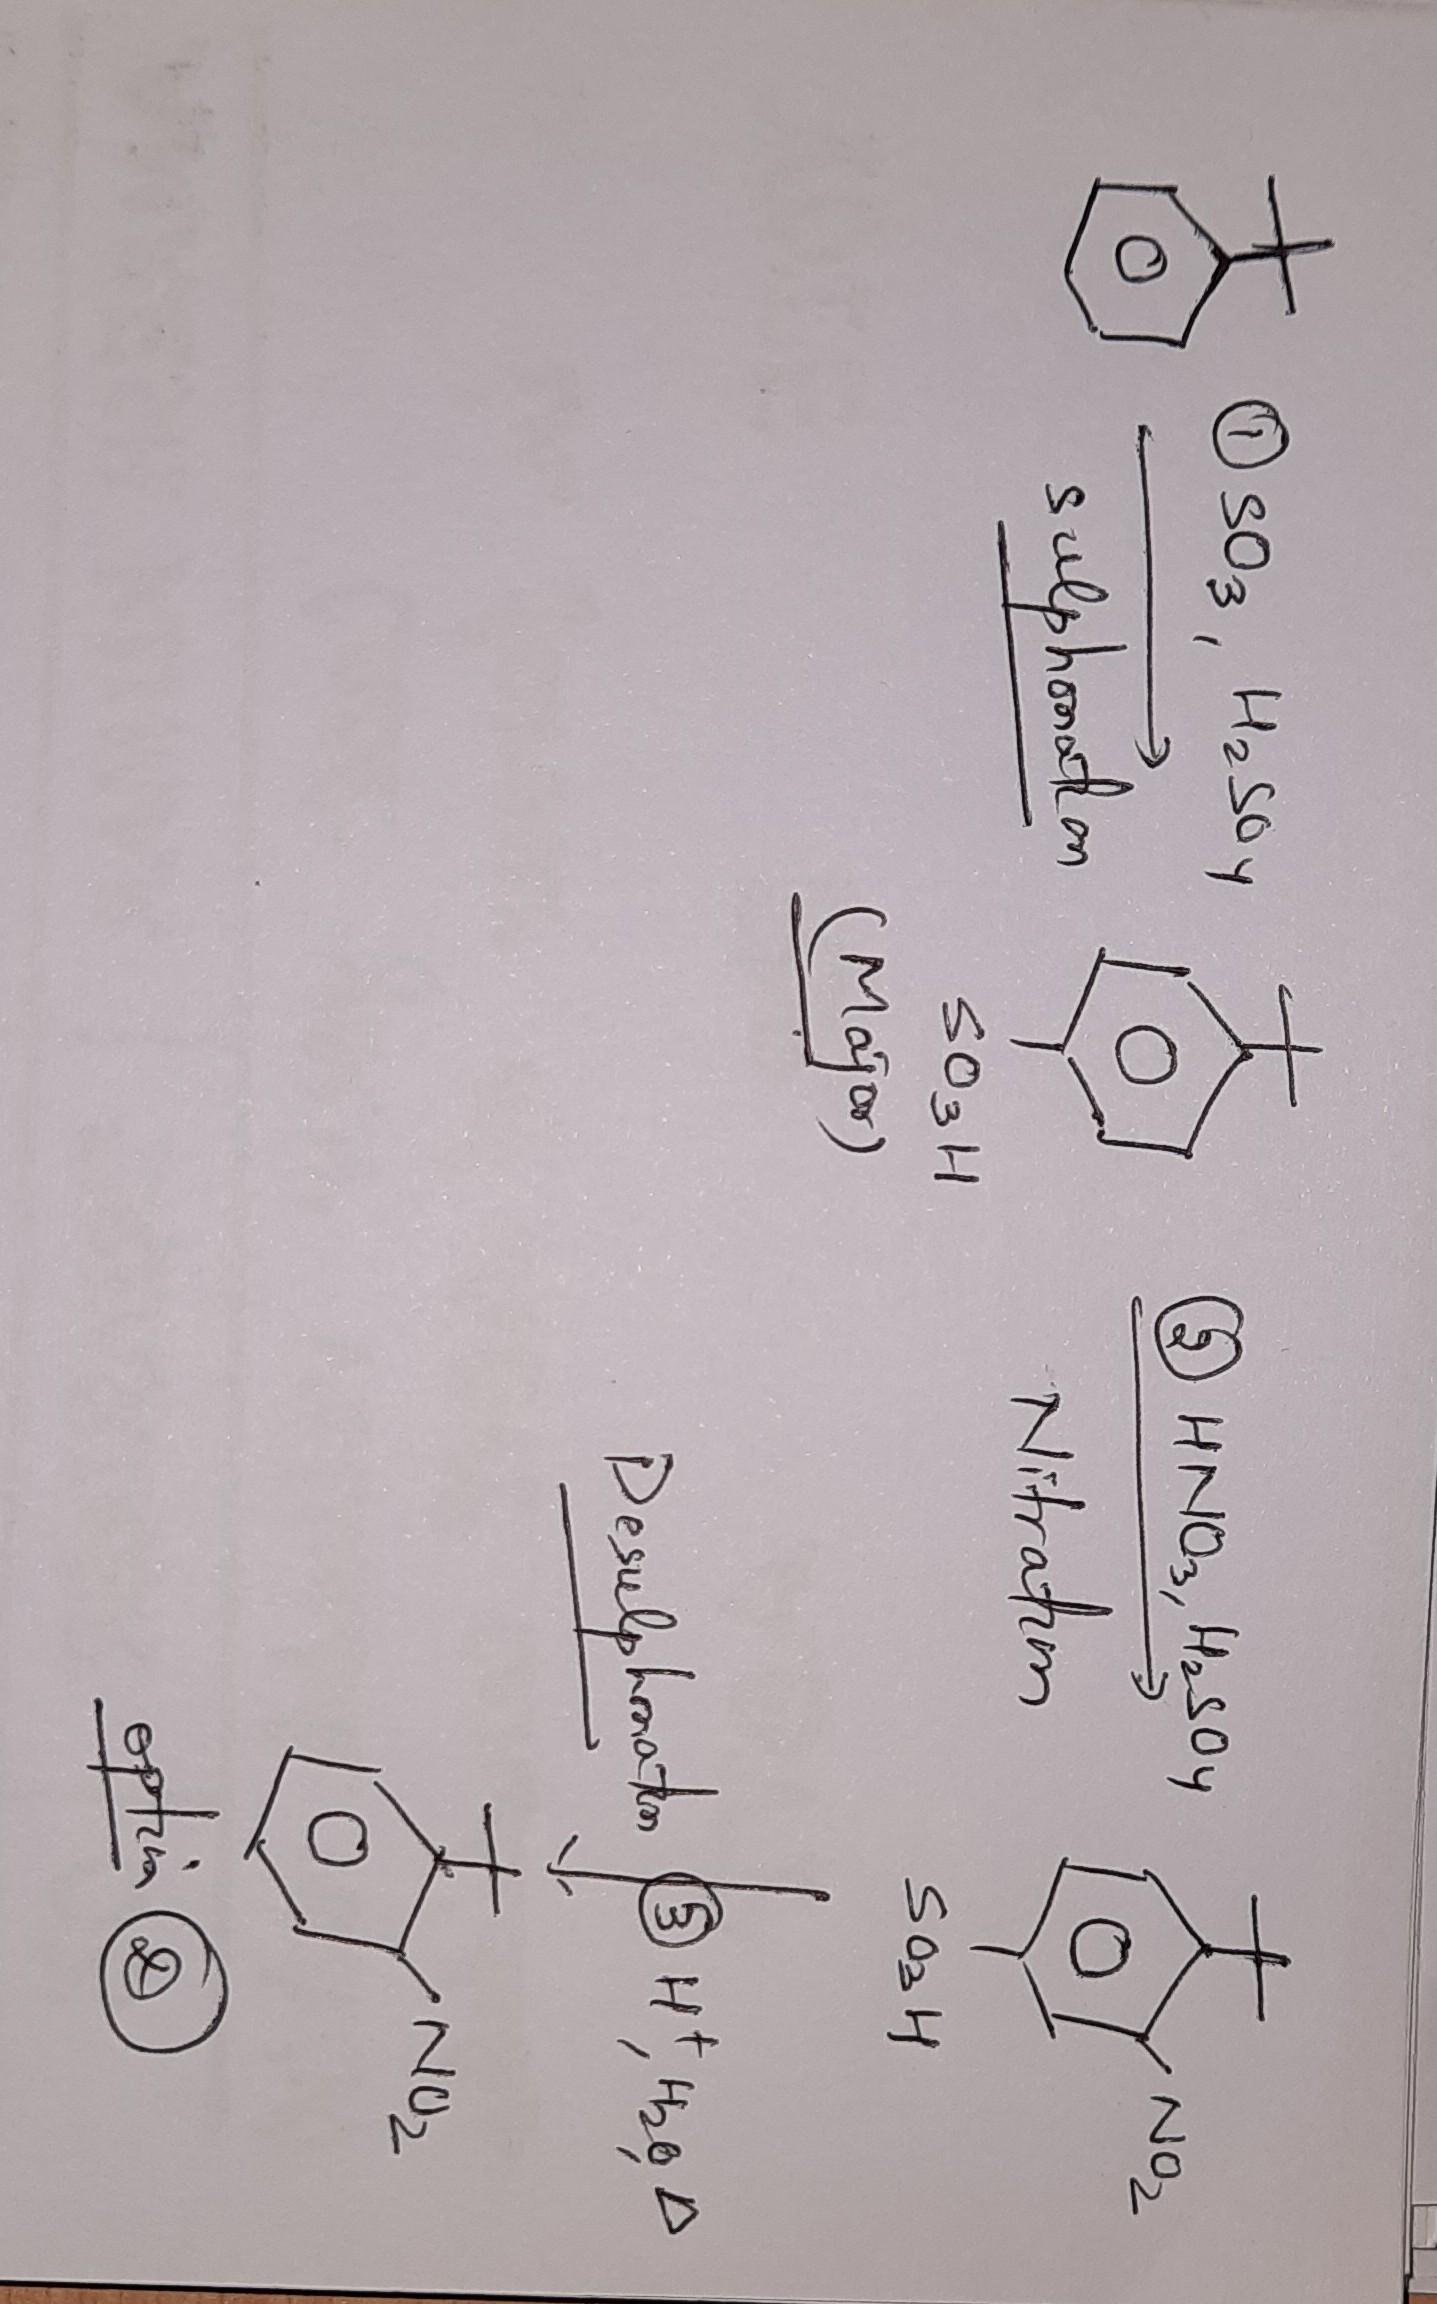 ① SO3, H2SO4
sulphonation
SO3H
(Major)
② HNO3, H2SO4
Nitration
NO2
SO3H
Desulphonation ③ H+, H2O, Δ
NO2
option ②